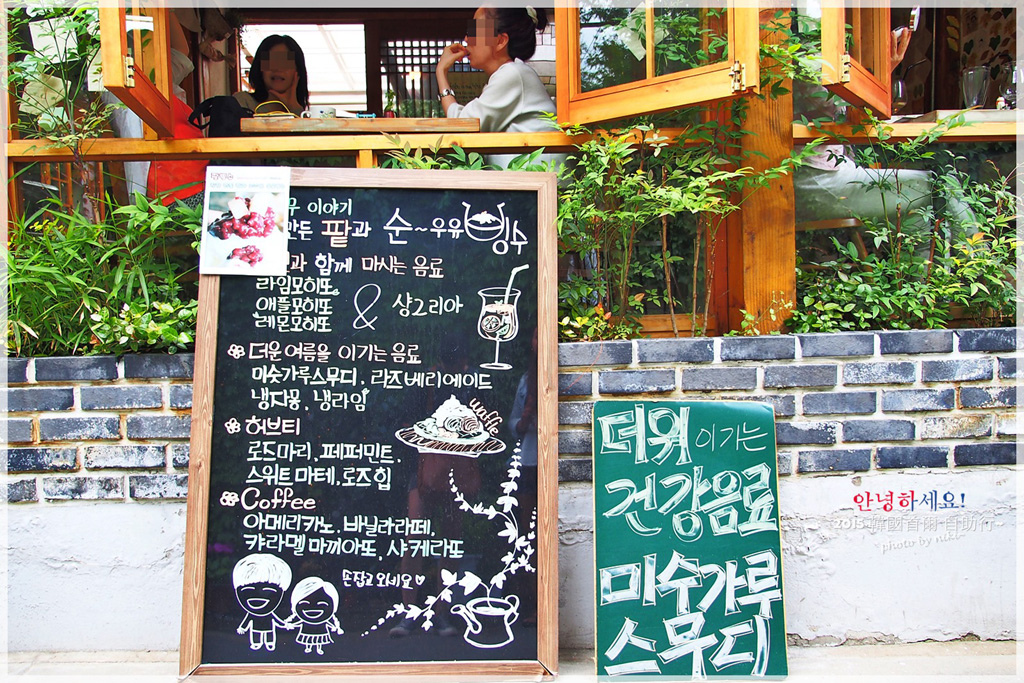 이야기
팥과 순~우유빙수
함께 마시는 음료
라임모히또
애플모히또 & 샹그리아
레몬모히또
더운여름을 이기는 음료
미숫가루스무디. 라즈베리에이드
냉자몽. 냉라임
waffle
허브티
로즈마리. 페퍼민트.
스위트 마테. 로즈힙
Coffee
아메리카노. 바닐라라떼.
캬라멜 마끼아또. 샤케라또
손잡고 오네요
더위 이기는
건강음료
미숫가루
스무디
안녕하세요!
2015 韓國首爾 自助行~
photo by niki~